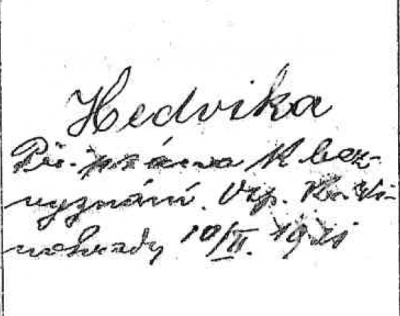 Hedvika
Př. práva k bez-
vyznání. Vzp. Kr. Vi-
nohrady 10/II. 1921